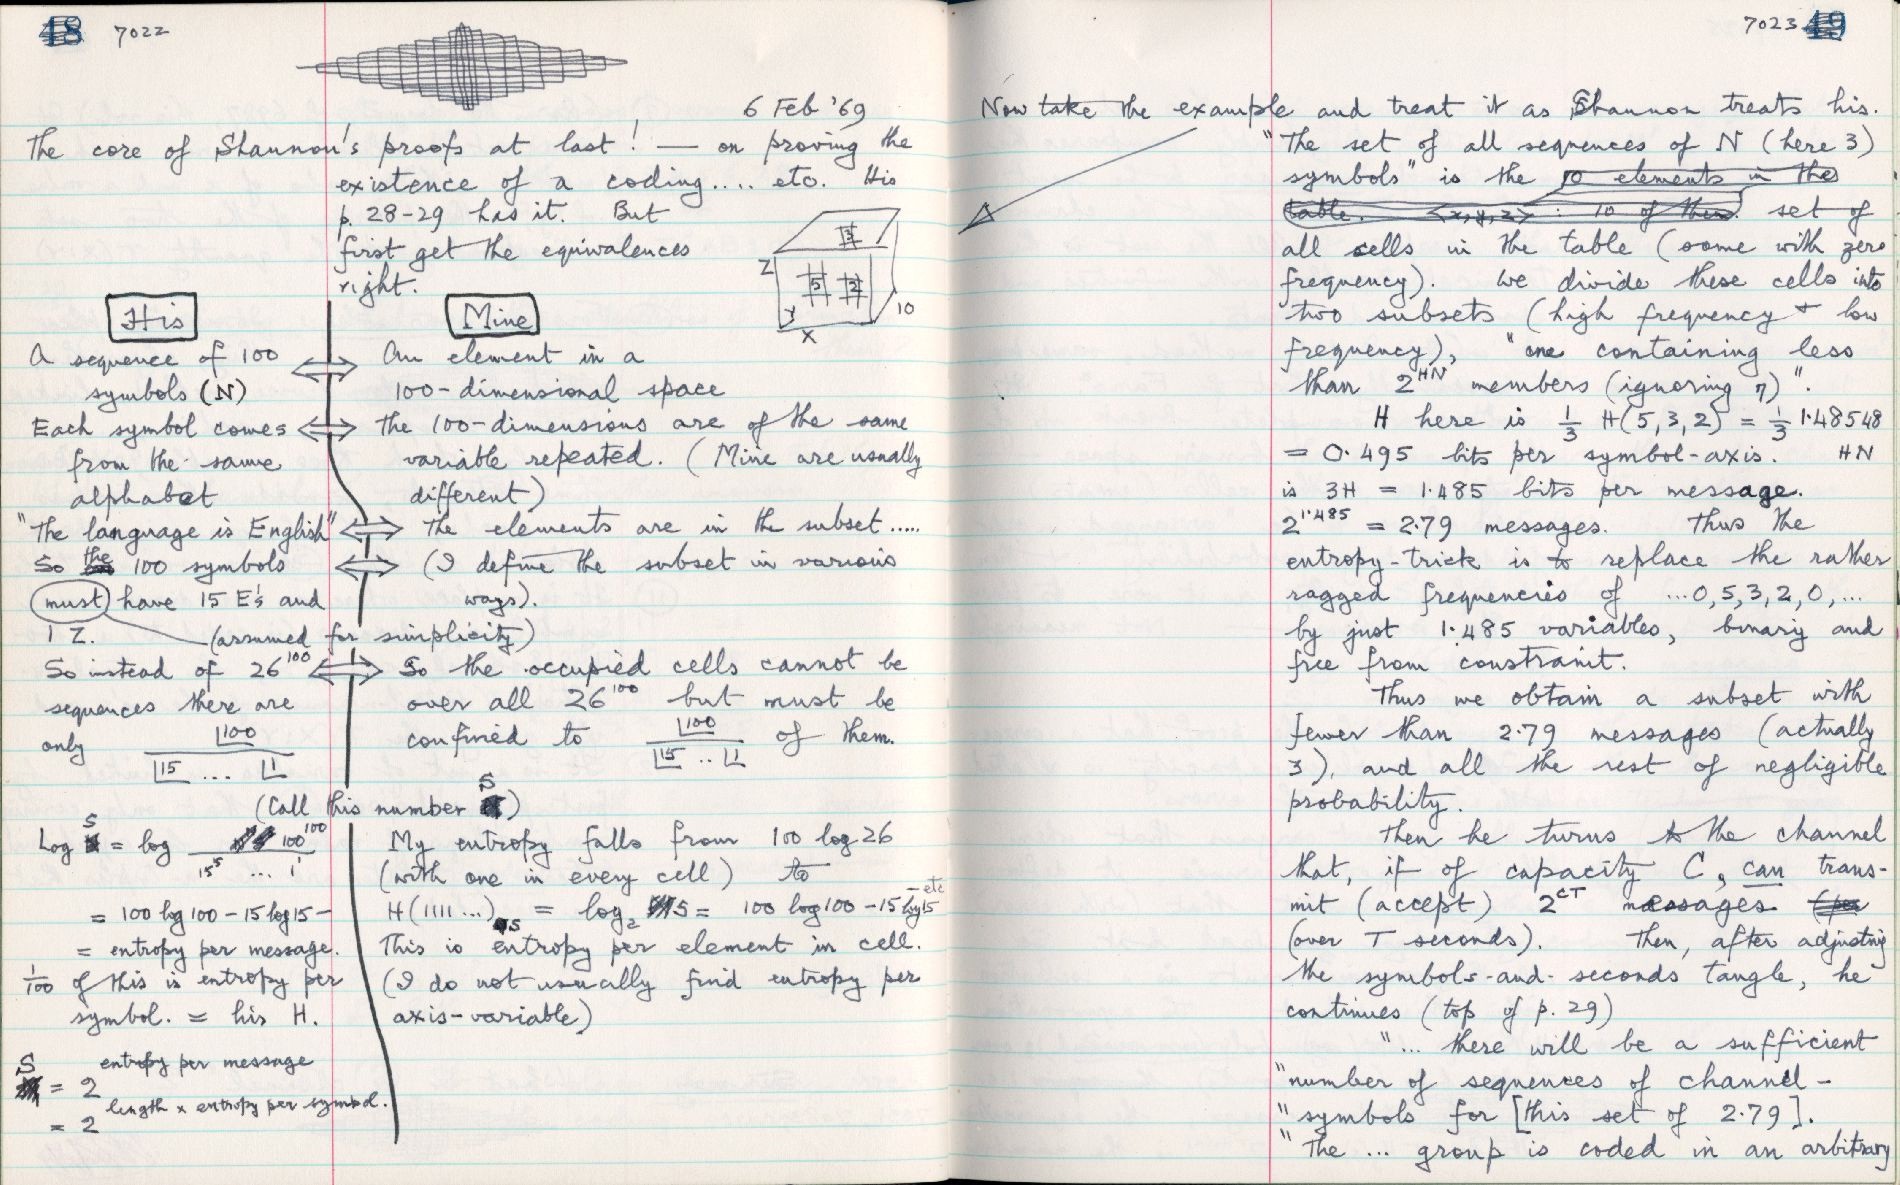 48 7022
6 Feb '69
The core of Shannon's proofs at last! — on proving the
existence of a coding.... etc. His
p. 28-29 has it. But
first get the equivalences
right.
Z 3 5 2 Y X 10
His
Mine
A sequence of 100 ⟺ An element in a
symbols (N) 100-dimensional space
Each symbol comes ⟺ The 100-dimensions are of the same
from the same variable repeated. (Mine are usually
alphabet different)
"The language is English" ⟺ The elements are in the subset.....
So the 100 symbols ⟺ (I define the subset in various
must have 15 E's and ways).
1 Z. (assumed for simplicity)
So instead of 26^100 ⟺ So the occupied cells cannot be
sequences there are over all 26^100 but must be
only |100 / |15 ... |1 confined to |100 / |15 .. |1 of them.
(Call this number S)
Log S = log 100^100 / 15^15 ... 1^1 My entropy falls from 100 log 26
(with one in every cell) to
= 100 log 100 - 15 log 15 - H(1111 ...)S = log₂ S = 100 log 100 - 15 log 15 - etc
= entropy per message. This is entropy per element in cell.
1/100 of this is entropy per (I do not usually find entropy per
symbol. = his H. axis-variable)
S = 2^entropy per message
= 2^length x entropy per symbol.
7023 49
Now take the example and treat it as Shannon treats his.
"The set of all sequences of N (here 3)
symbols" is the 10 elements in the
table. <x,y,z> : 10 of them. set of
all cells in the table (some with zero
frequency). We divide these cells into
two subsets (high frequency + low
frequency), "one containing less
than 2^HN members (ignoring η)".
H here is 1/3 H(5,3,2) = 1/3 1·48548
= 0·495 bits per symbol-axis. HN
is 3H = 1·485 bits per message.
2^1·485 = 2·79 messages. Thus the
entropy-trick is to replace the rather
ragged frequencies of ...0,5,3,2,0,...
by just 1·485 variables, binary and
free from constraint.
Thus we obtain a subset with
fewer than 2·79 messages (actually
3), and all the rest of negligible
probability.
Then he turns to the channel
that, if of capacity C, can trans-
mit (accept) 2^CT messages (per
(over T seconds). Then, after adjusting
the symbols-and-seconds tangle, he
continues (top of p. 29)
"... there will be a sufficient
"number of sequences of channel-
"symbols for [this set of 2·79].
"The ... group is coded in an arbitrary